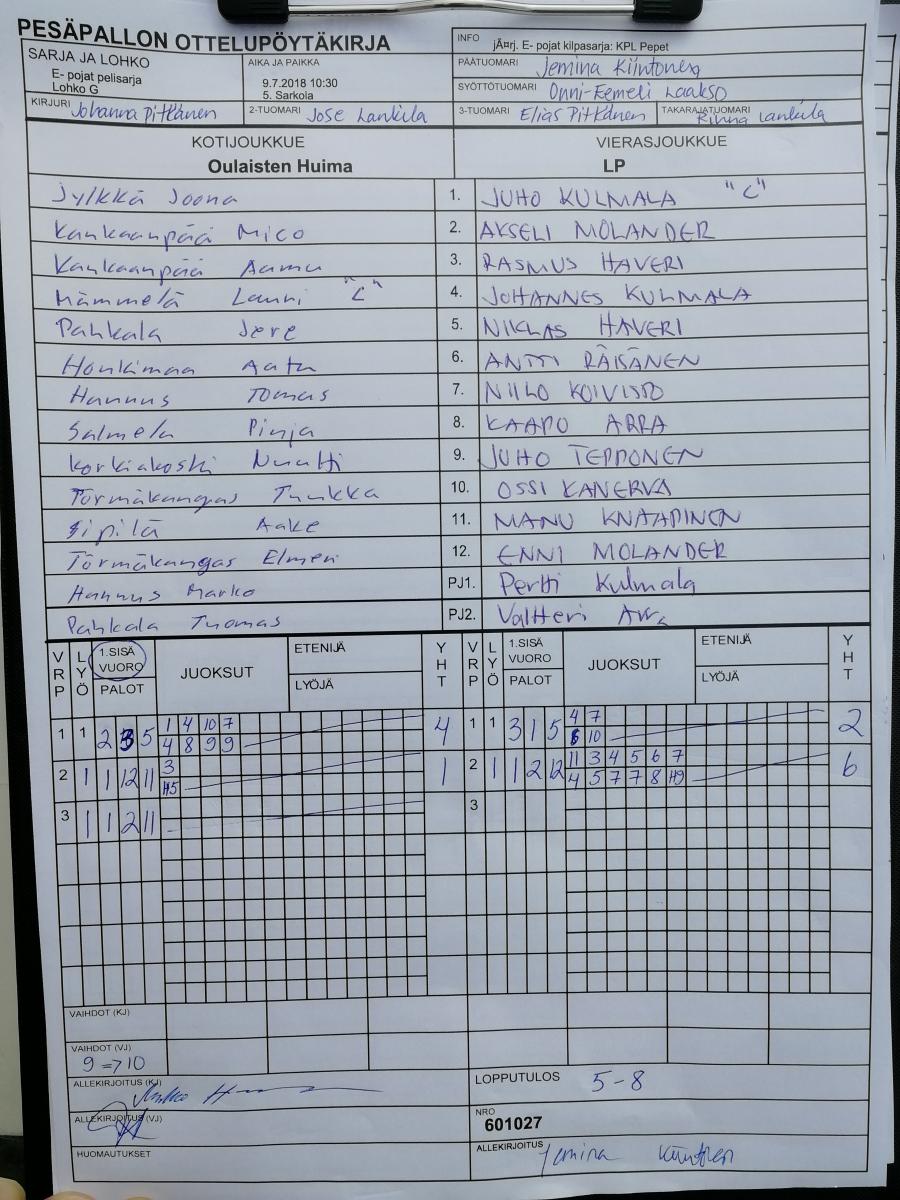 PESÄPALLON OTTELUPÖYTÄKIRJA
SARJA JA LOHKO
E- pojat pelisarja
Lohko G
AIKA JA PAIKKA
9.7.2018 10:30
5. Sarkola
INFO
jÄ¤rj. E- pojat kilpasarja: KPL Pepet
PÄÄTUOMARI Jemina Kiintonen
SYÖTTÖTUOMARI Onni-Eemeli Laakso
KIRJURI Johanna Pitkänen
2-TUOMARI Jose Lankila
3-TUOMARI Elias Pitkänen
TAKARAJATUOMARI Lankila
KOTIJOUKKUE
Oulaisten Huima
VIERASJOUKKUE
LP
Jylkkä Joona 1. JUHO KULMALA "C"
Kankaanpää Mico 2. AKSELI MOLANDER
Kankaanpää Aamu 3. RASMUS HAVERI
Hämmelä Lauri "C" 4. JOHANNES KULMALA
Pahkala Jere 5. NIKLAS HAVERI
Honkimaa Aatu 6. ANTTI RÄISÄNEN
Hannus Tomas 7. NIILO KOIVISTO
Salmela Pinja 8. KAAPO ARRA
Korkiakoski Nuutti 9. JUHO TEPPONEN
Törmäkangas Tuukka 10. OSSI KANERVA
Sipilä Aake 11. MANU KNAAPINEN
Törmäkangas Elmeri 12. ENNI MOLANDER
Hannus Marko PJ1. Pertti Kulmala
Pahkala Tuomas PJ2. Valtteri Arra
VRP LYÖ 1.SISÄ VUORO PALOT JUOKSUT ETENIJÄ LYÖJÄ YHT VRP LYÖ 1.SISÄ VUORO PALOT JUOKSUT ETENIJÄ LYÖJÄ YHT
1 1 2 3 5 1 4 10 7 4 1 1 3 1 5 4 7 2
4 8 9 9 6 10
2 1 1 12 11 3 1 2 1 1 2 12 11 3 4 5 6 7 6
H5 4 5 7 7 8 H9
3 1 1 2 11 3
VAIHDOT (KJ)
VAIHDOT (VJ)
9 => 10
ALLEKIRJOITUS (KJ)
LOPPUTULOS 5-8
ALLEKIRJOITUS (VJ)
NRO
601027
HUOMAUTUKSET
ALLEKIRJOITUS Jemina Kiintonen